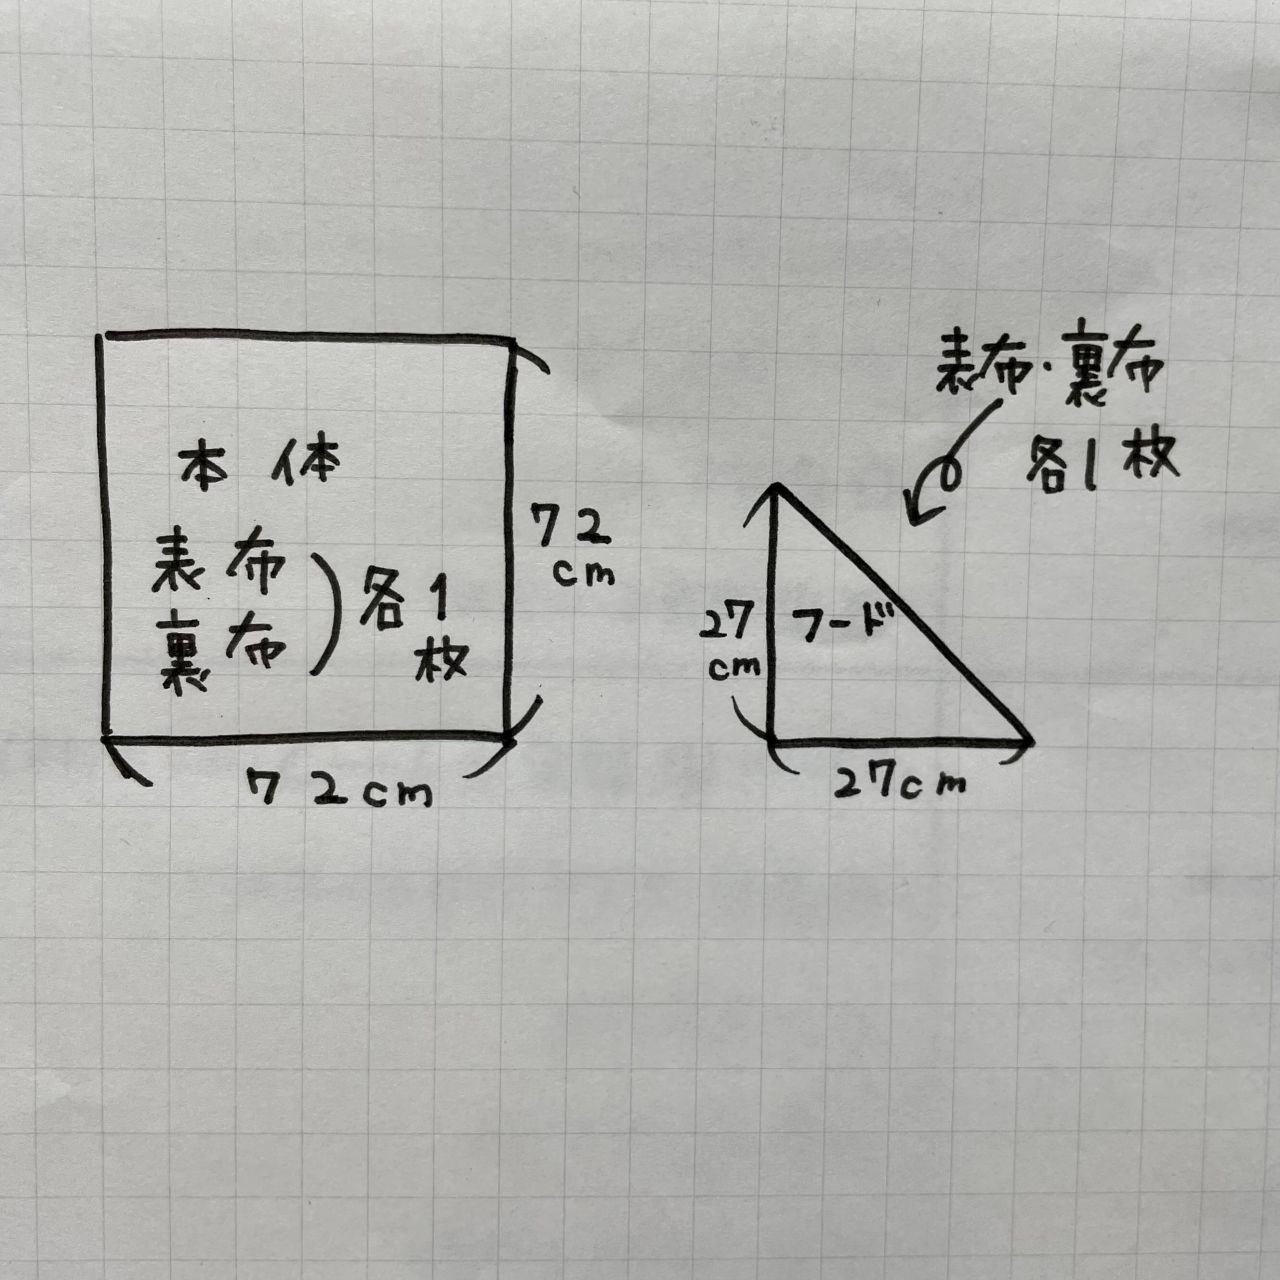 本体
表布
裏布)各1
枚
72
cm
72cm
表布・裏布
各1枚
27
cm
フード
27cm